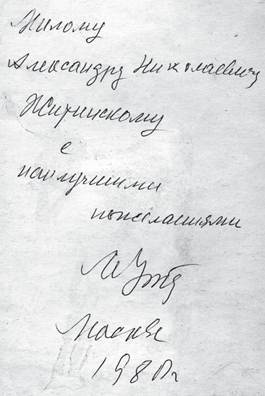 Милому
Александру Николаевичу
Житинскому
с
наилучшими
пожеланиями
Москва
1980 г